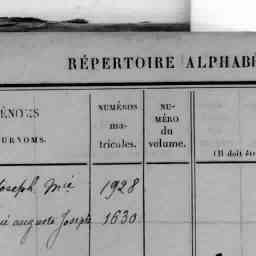 RÉPERTOIRE ALPHAB
ÉNOMS
URNOMS.
NUMÉROS
ma-
tricules.
NU-
MÉRO
du
volume.
(Il doit êt
Joseph Mié 1928
auguste Joseph 1630